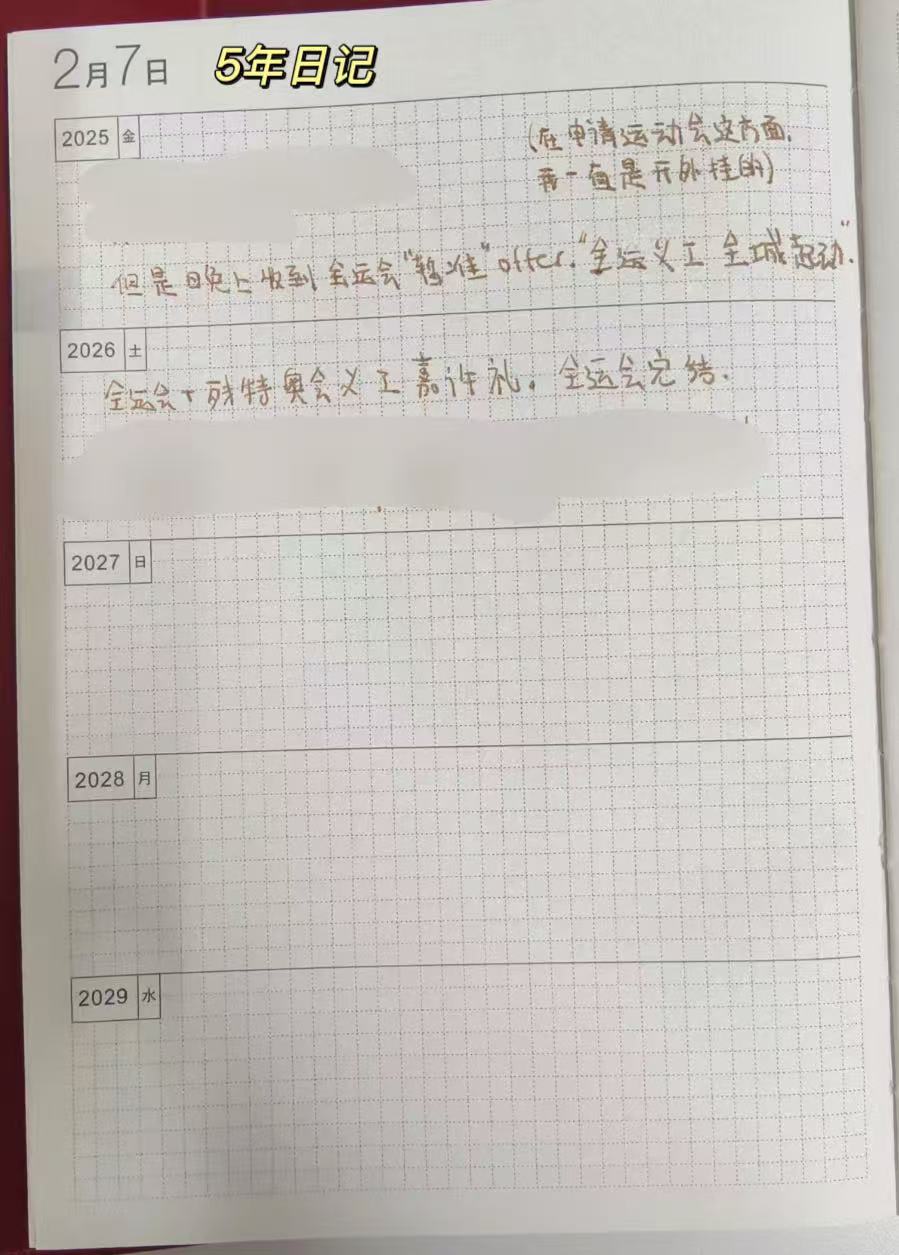 2月7日 5年日记
2025 金
(在申请运动会这方面,
我一直是开外挂的)
但是日晚上收到全运会"移准"offer."全运义工 全城起动".
2026 土
全运会+残特奥会义工嘉许礼。全运会完结.
2027 日
2028 月
2029 水